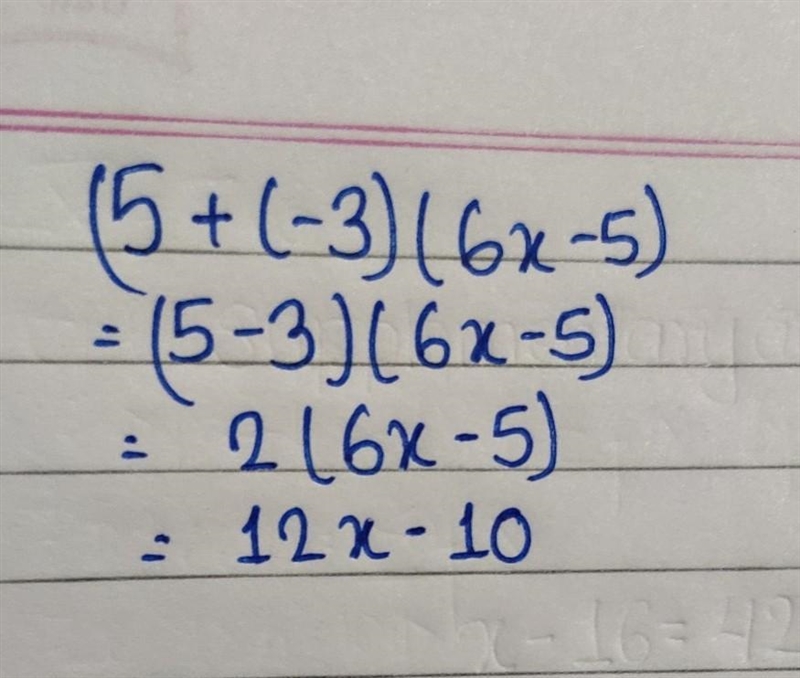 (5 + (-3) (6x - 5)
= (5 - 3) (6x - 5)
= 2 (6x - 5)
= 12x - 10
x - 16 = 42